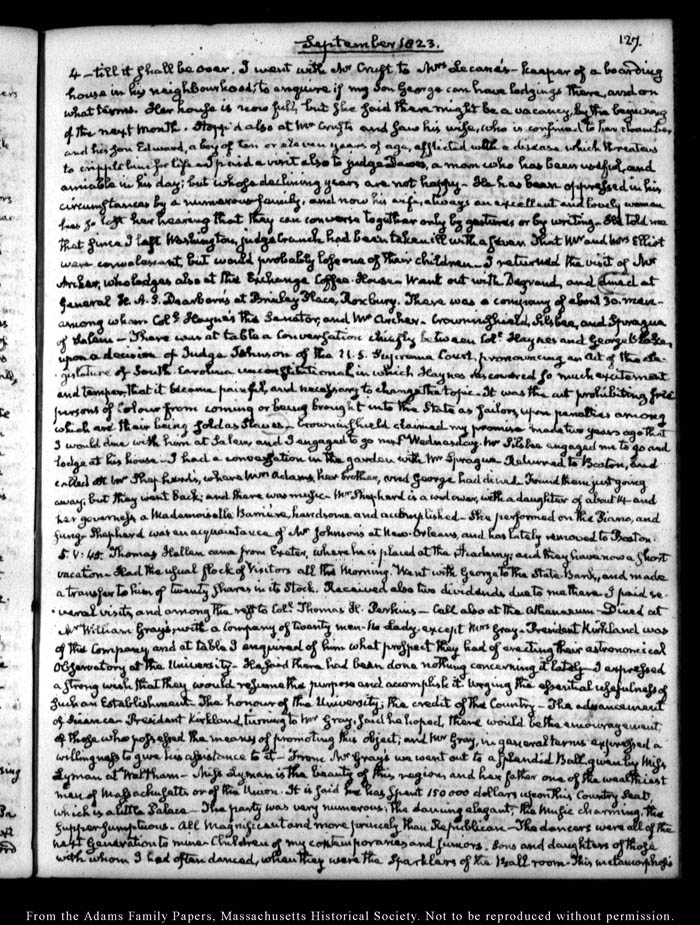 September 1823.
127.
4 – till it shall be over. I went with Mr Cruft to Mrs Lecane's – keeper of a boarding
house in his neighbourhood, to enquire if my Son George can have lodgings there, and on
what terms. Her house is now full, but she said there might be a vacancy by the beginning
of the next month. Stopp'd also at Mr Cruft's and saw his wife, who is confined to her chamber,
and his Son Edward, a boy of ten or eleven years of age, afflicted with a disease which threatens
to cripple him for life – paid a visit also to Judge Dawes, a man who has been useful, and
amiable in his day; but whose declining years are not happy – He has been oppressed in his
circumstances by a numerous family, and now his wife, always an excellent and lovely woman
has so lost her hearing that they can converse together only by gestures or by writing. He told me
that since I left Washington, judge Cranch had been taken ill with a fever. That Mr and Mrs Elliot
were convalescent, but would probably lose one of their children – I returned the visit of Mr
Archer, who lodges also at the Exchange Coffee-House – Went out with Degrand, and dined at
General H. A. S. Dearborn's at Brinley Place, Roxbury. There was a company of about 30. men –
among whom Col. Hayne the Senator, and Mr Archer. Crowninshield, Silsbee, and Sprague
of Salem – There was at table a Conversation chiefly between Col. Haynes and George Blake,
upon a decision of Judge Johnson of the U.S. Supreme Court, pronouncing an Act of the Le-
gislature of South Carolina unconstitutional, in which Haynes discovered so much excitement
and temper, that it became painful, and necessary to change the topic – It was the act prohibiting free
persons of Colour from coming or being brought into the State as Sailors, upon penalties among
which are their being sold as Slaves – Crowninshield claimed my promise made two years ago that
I would dine with him at Salem, and I engaged to go next Wednesday. Mr Silsbee engaged me to go and
lodge at his house – I had a conversation in the garden with Mr Sprague. Returned to Boston, and
called at Mr Shepherd's, where Mrs Adams, her brother, and George had dined. Found them just going
away; but they went back; and there was music – Mr Shepherd is a widower, with a daughter of about 14 – and
her governess a Mademoiselle Barrière, handsome and accomplished – She performed on the Piano, and
sung. Shepherd was an acquaintance of Mr Johnson's at New-Orleans, and has lately removed to Boston.
5. V: 45. Thomas Hellen came from Exeter, where he is placed at the Academy; and they have now a short
vacation – Had the usual flock of Visitors all the Morning. Went with George to the State Bank, and made
a transfer to him of twenty Shares in its Stock. Received also two dividends due to me there. I paid se-
veral visits, and among the rest to Col. Thomas H. Perkins – Call also at the Athenaeum – Dined at
Mr William Gray's, with a Company of twenty men. No Lady except Mrs Gray – President Kirkland was
of the Company, and at table I enquired of him what prospect they had of erecting their astronomical
Observatory at the University – He said there had been done nothing concerning it lately – I expressed
a strong wish that they would resume the purpose and accomplish it. Urging the essential usefulness of
such an Establishment. The honour of the University; the credit of the Country – The advancement
of Science – President Kirkland, turning to Mr Gray, said he hoped, there would be the encouragement,
of those who possessed the means of promoting this object; and Mr Gray, in general terms expressed a
willingness to give his assistance to it – From Mr Gray's we went out to a splendid Ball, given by Miss
Lyman at Waltham – Miss Lyman is the beauty of this region, and her father one of the wealthiest
men of Massachusetts or of the Union. It is said he has spent 150 000 dollars upon this Country Seat,
which is a little Palace – The party was very numerous; the dancing elegant, the music charming, the
Supper sumptuous. All magnificent and more princely than Republican – The dancers were all of the
next Generation to mine – Children of my contemporaries and juniors. Sons and daughters of those
with whom I had often danced, when they were the Sparklers of the Ball room – This metamorphosis
From the Adams Family Papers, Massachusetts Historical Society. Not to be reproduced without permission.